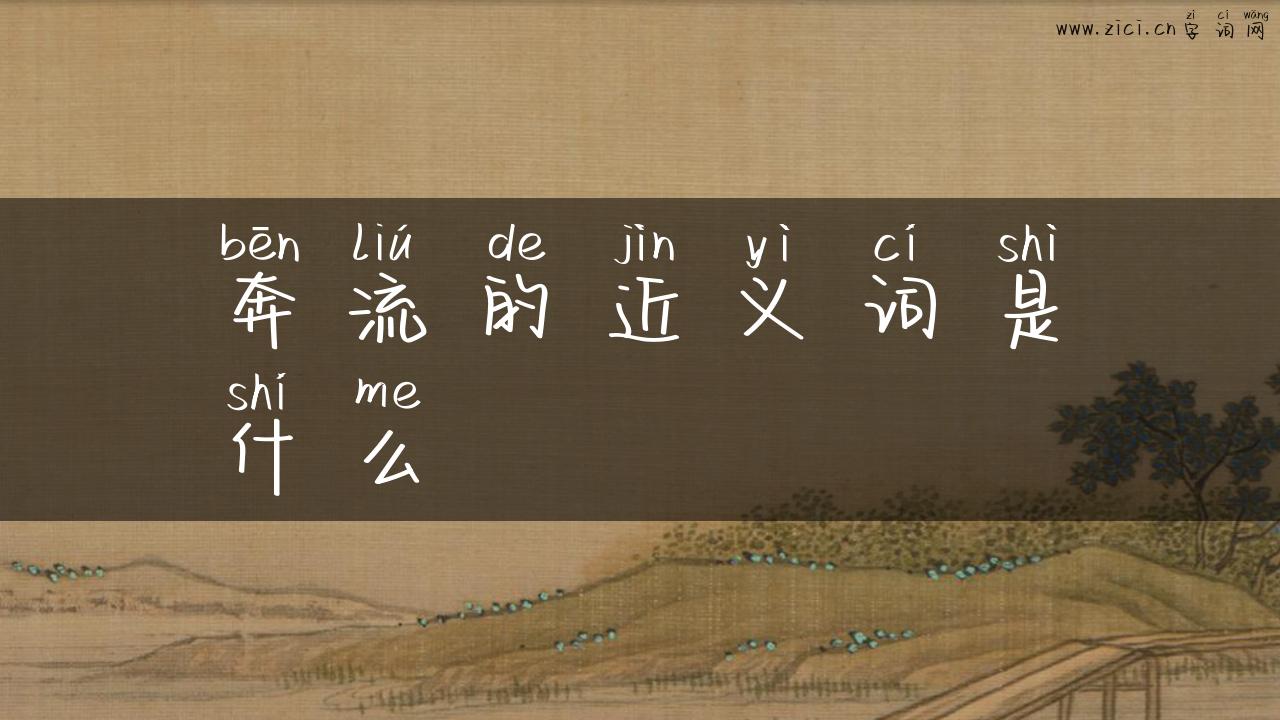 zì cí wǎng
www.zici.cn字词网
bēn liú de jìn yì cí shì
奔流的近义词是
shí me
什么